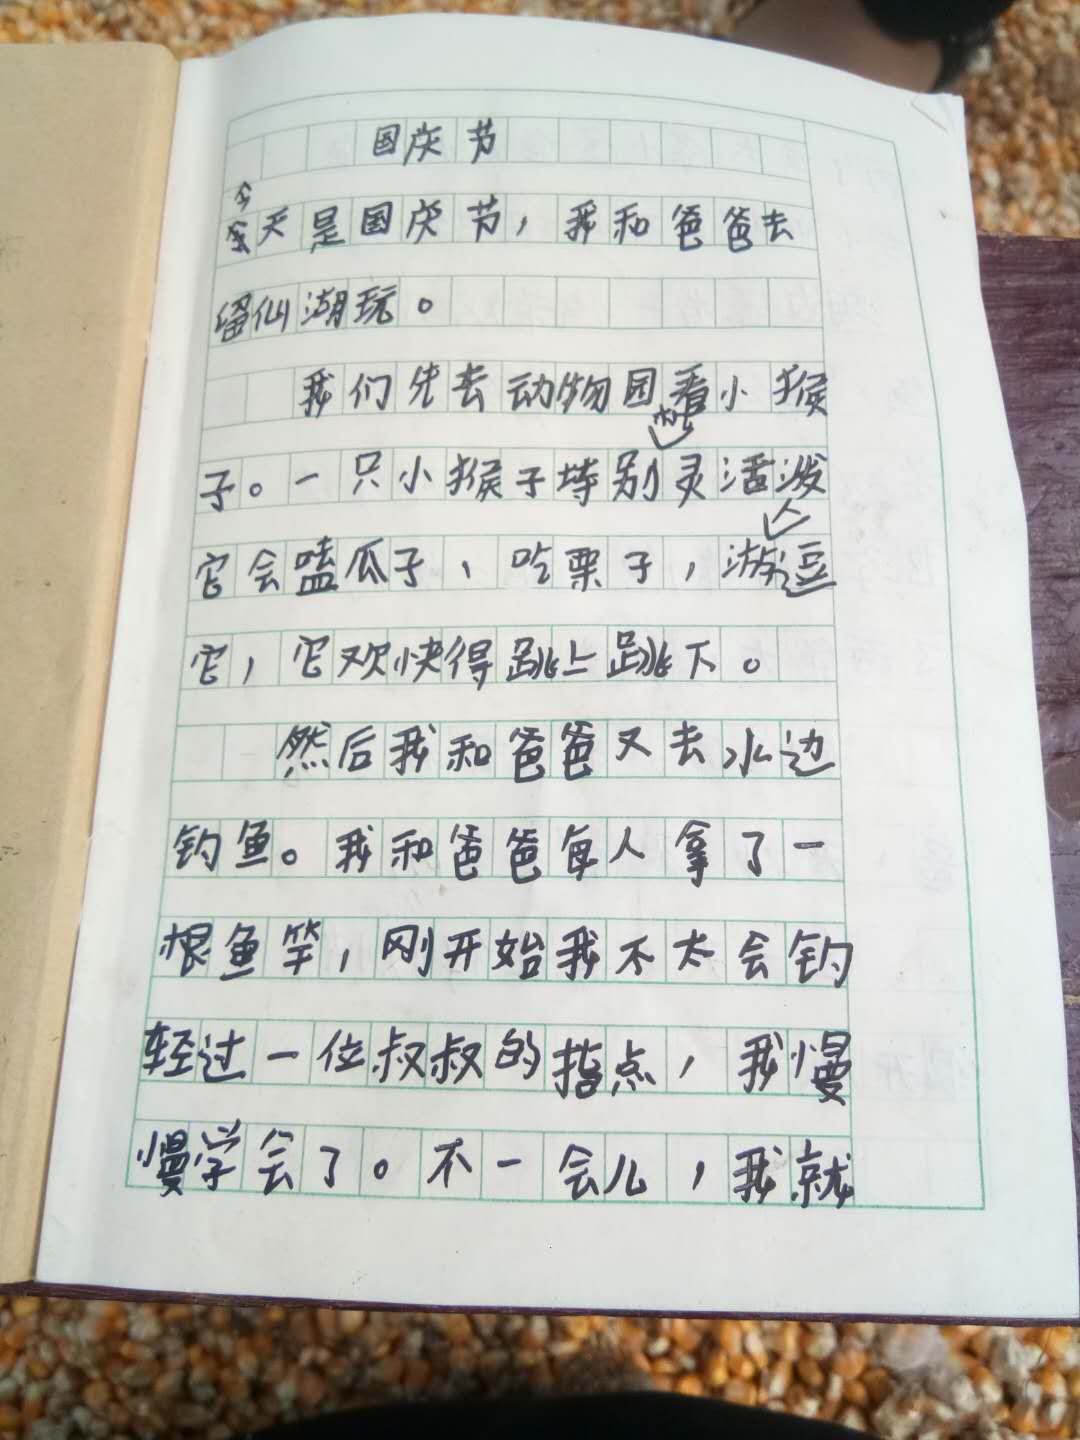 国庆节
今天是国庆节，我和爸爸去
留仙湖玩。
我们先去动物园看小猴
子。一只小猴子特别灵活泼
它会嗑瓜子，吃栗子，游人逗
它，它欢快得跳上跳下。
然后我和爸爸又去水边
钓鱼。我和爸爸每人拿了一
根鱼竿，刚开始我不太会钓
轻过一位叔叔的指点，我慢
慢学会了。不一会儿，我就